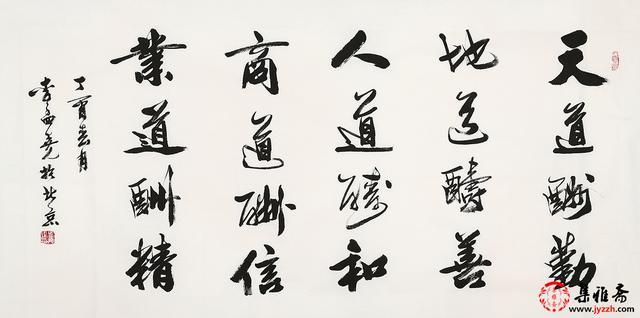 天道酬勤
地道酬善
人道酬和
商道酬信
業道酬精
丁酉春月
李孟尧於北京
集雅斋
www.jyzzh.com